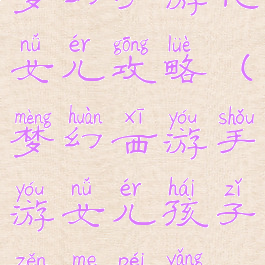 nǚ ér gōng lüè
女儿攻略（
mèng huàn xī yóu shǒu
梦幻西游手
yóu nǚ ér hái zǐ
游女儿孩子
zěn me péi yǎng